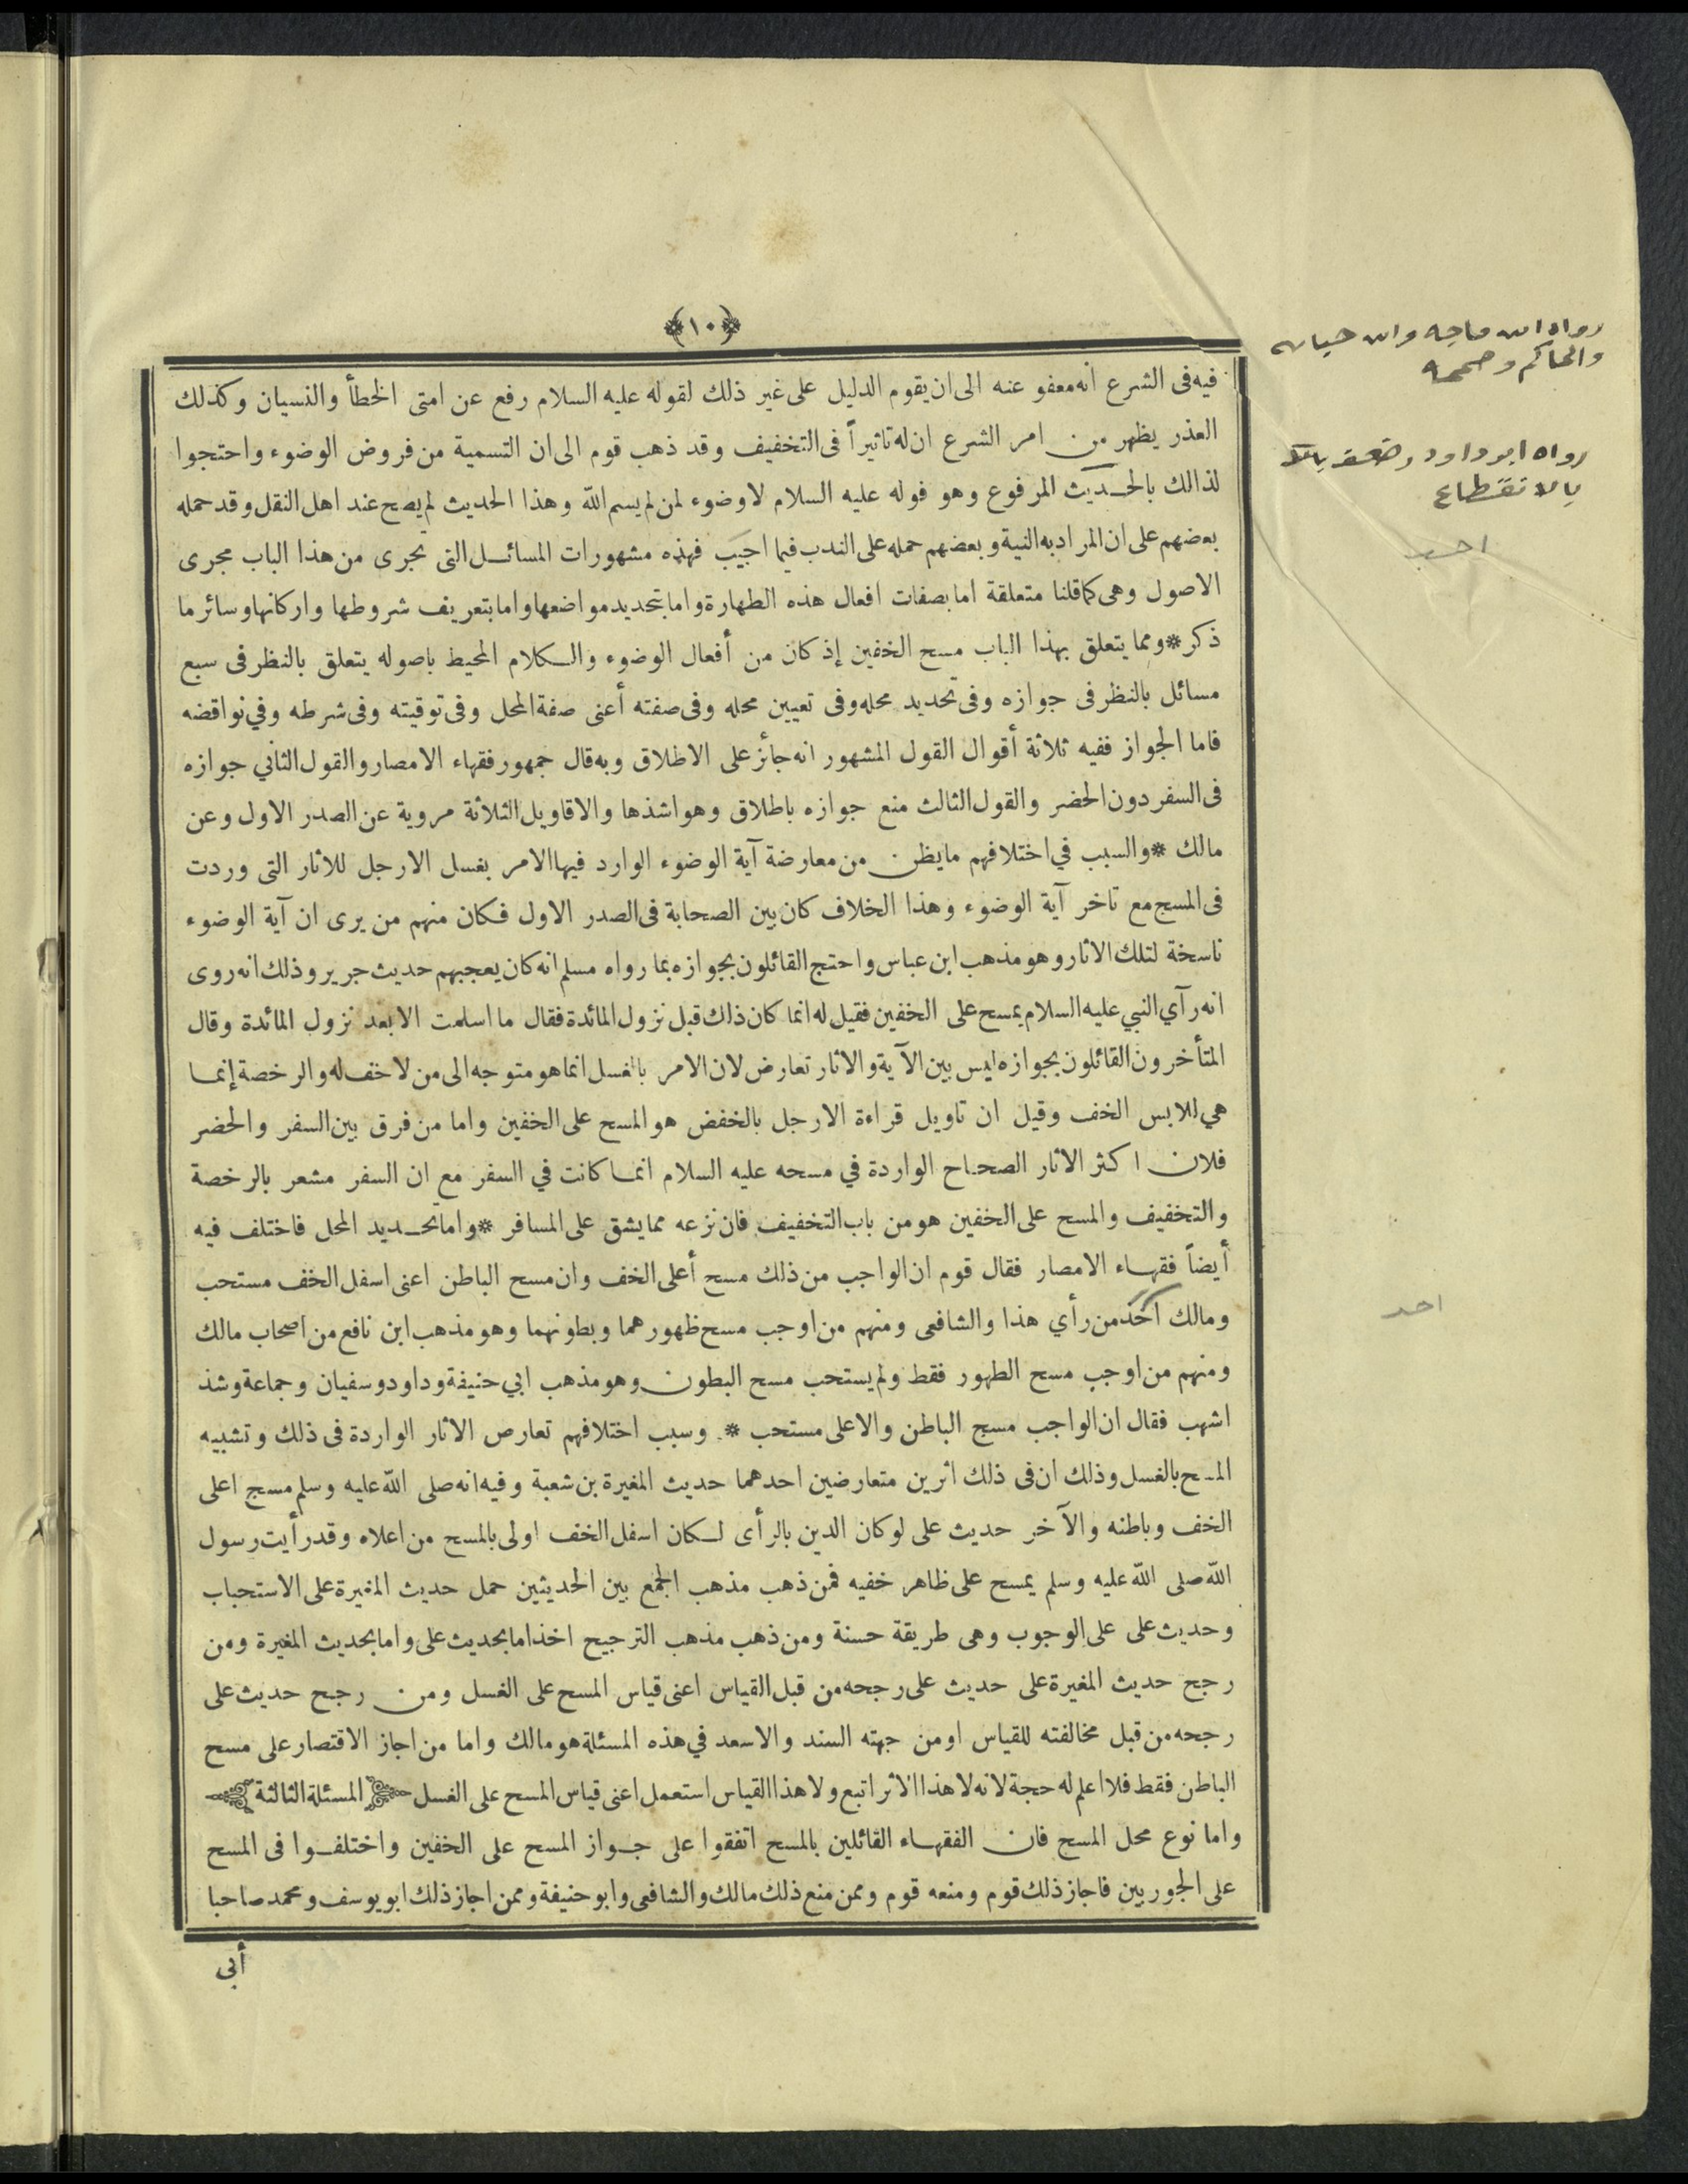 ﴿١٠﴾
فيه فى الشرع انه معفو عنه الى ان يقوم الدليل على غير ذلك لقوله عليه السلام رفع عن امتى الخطأ والنسيان وكذلك
العذر يظهر من امر الشرع ان له تاثيراً فى التخفيف وقد ذهب قوم الى ان التسمية من فروض الوضوء واحتجوا
لذالك بالحديث المرفوع وهو قوله عليه السلام لا وضوء لمن لم يسم الله وهذا الحديث لم يصح عند اهل النقل وقد حمله
بعضهم على ان المراد به النية وبعضهم حمله على الندب فيما احيَب فهذه مشهورات المسائل التى تجرى من هذا الباب مجرى
الاصول وهى كما قلنا متعلقة اما بصفات افعال هذه الطهارة واما بتحديد مواضعها واما بتعريف شروطها واركانها وسائر ما
ذكر * ومما يتعلق بهذا الباب مسح الخفين إذ كان من أفعال الوضوء والكلام المحيط باصوله يتعلق بالنظر فى سبع
مسائل بالنظر فى جوازه وفى تحديد محله وفى تعيين محله وفى صفته أعنى صفة المحل وفى توقيته وفى شرطه وفي نواقضه
فاما الجواز ففيه ثلاثة أقوال القول المشهور انه جائز على الاطلاق وبه قال جمهور فقهاء الامصار والقول الثاني جوازه
فى السفر دون الحضر والقول الثالث منع جوازه باطلاق وهو اشذها والاقاويل الثلاثة مروية عن الصدر الاول وعن
مالك * والسبب في اختلافهم ما يظن من معارضة آية الوضوء الوارد فيها الامر بغسل الارجل للاثار التى وردت
فى المسح مع تاخر آية الوضوء وهذا الخلاف كان بين الصحابة فى الصدر الاول فكان منهم من يرى ان آية الوضوء
ناسخة لتلك الاثار وهو مذهب ابن عباس واحتج القائلون بجوازه بما رواه مسلم انه كان يعجبهم حديث جرير وذلك انه روى
انه رآي النبي عليه السلام يمسح على الخفين فقيل له انما كان ذاك قبل نزول المائدة فقال ما اسلمت الا بعد نزول المائدة وقال
المتأخرون القائلون بجوازه ليس بين الآية والاثار تعارض لان الامر بالغسل انما هو متوجه الى من لا خف له والرخصة إنما
هي للابس الخف وقيل ان تاويل قراءة الارجل بالخفض هو المسح على الخفين واما من فرق بين السفر والحضر
فلان اكثر الاثار الصحاح الواردة في مسحه عليه السلام انما كانت في السفر مع ان السفر مشعر بالرخصة
والتخفيف والمسح على الخفين هو من باب التخفيف فان نزعه مما يشق على المسافر * واما تحديد المحل فاختلف فيه
أيضاً فقهاء الامصار فقال قوم ان الواجب من ذلك مسح أعلى الخف وان مسح الباطن اعنى اسفل الخف مستحب
ومالك من رأي هذا والشافعى ومنهم من اوجب مسح ظهورهما وبطونهما وهو مذهب ابن نافع من اصحاب مالك
ومنهم من اوجب مسح الظهور فقط ولم يستحب مسح البطون وهو مذهب ابي حنيفة وداود وسفيان وجماعة وشذ
اشهب فقال ان الواجب مسح الباطن والاعلى مستحب * وسبب اختلافهم تعارص الاثار الواردة فى ذلك وتشبيه
المسح بالغسل وذلك ان فى ذلك اثرين متعارضين احدهما حديث المغيرة بن شعبة وفيه انه صلى الله عليه وسلم مسح اعلى
الخف وباطنه والآخر حديث على لو كان الدين بالرأى لكان اسفل الخف اولى بالمسح من اعلاه وقد رأيت رسول
الله صلى الله عليه وسلم يمسح على ظاهر خفيه فمن ذهب مذهب الجمع بين الحديثين حمل حديث المغيرة على الاستحباب
وحديث على على الوجوب وهى طريقة حسنة ومن ذهب مذهب الترجيح اخذ اما بحديث على واما بحديث المغيرة ومن
رجح حديث المغيرة على حديث على رجحه من قبل القياس اعنى قياس المسح على الغسل ومن رجح حديث على
رجحه من قبل مخالفته للقياس او من جهته السند والاسعد في هذه المسئلة هو مالك واما من اجاز الاقتصار على مسح
الباطن فقط فلا اعلم له حجة لانه لا هذا الاثر اتبع ولا هذا القياس استعمل اعنى قياس المسح على الغسل ﴿المسئلة الثالثة﴾
واما نوع محل المسح فان الفقهاء القائلين بالمسح اتفقوا على جواز المسح على الخفين واختلفوا فى المسح
على الجوربين فاجاز ذلك قوم ومنعه قوم وممن منع ذلك مالك والشافعى وابو حنيفة وممن اجاز ذلك ابو يوسف ومحمد صاحبا
أبى
رواه ابن ماجه وابن حبان
والحاكم وصححه
رواه ابو داود وضعف
بالانقطاع
احد